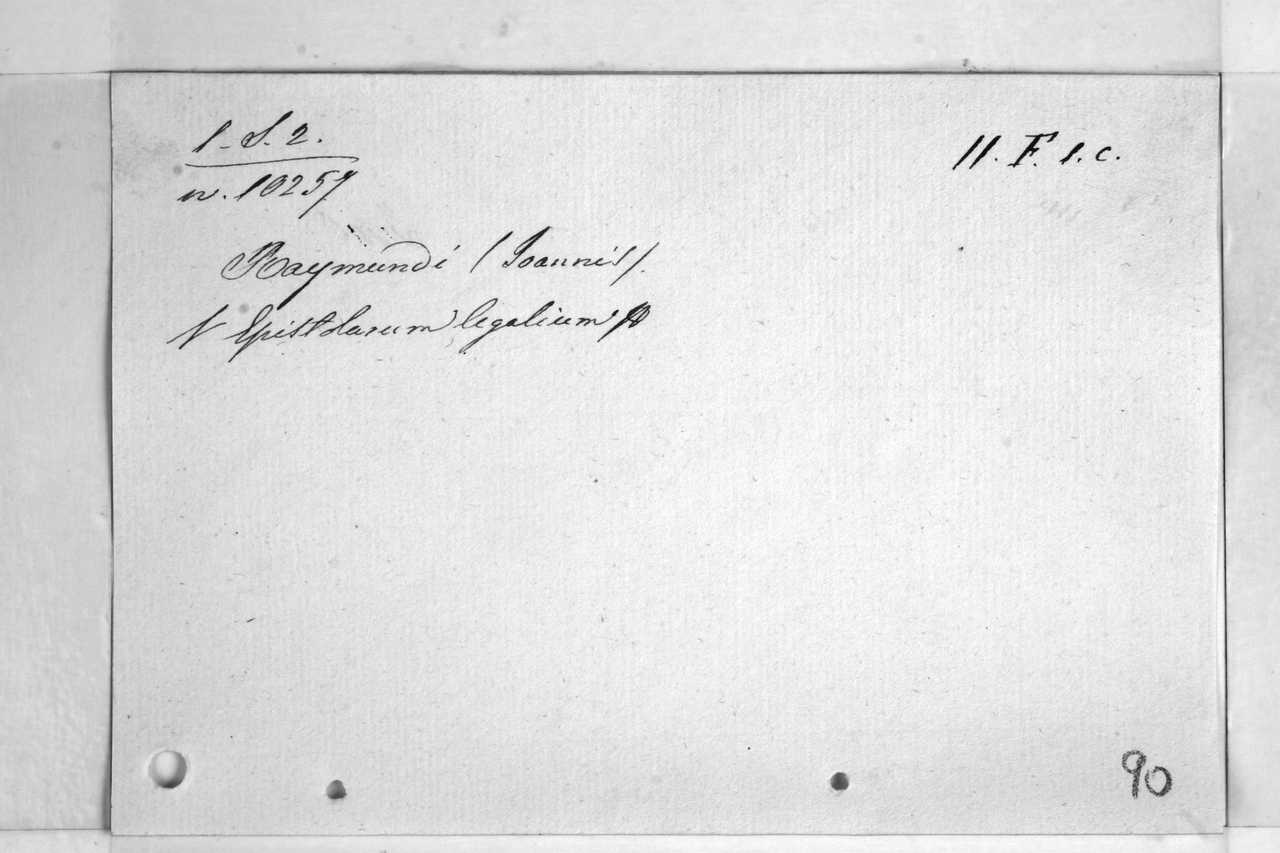 1-S. 2.
n. 10257
11. F. 1. c.
Raymundi (Joannis).
Epistolarum legalium
90